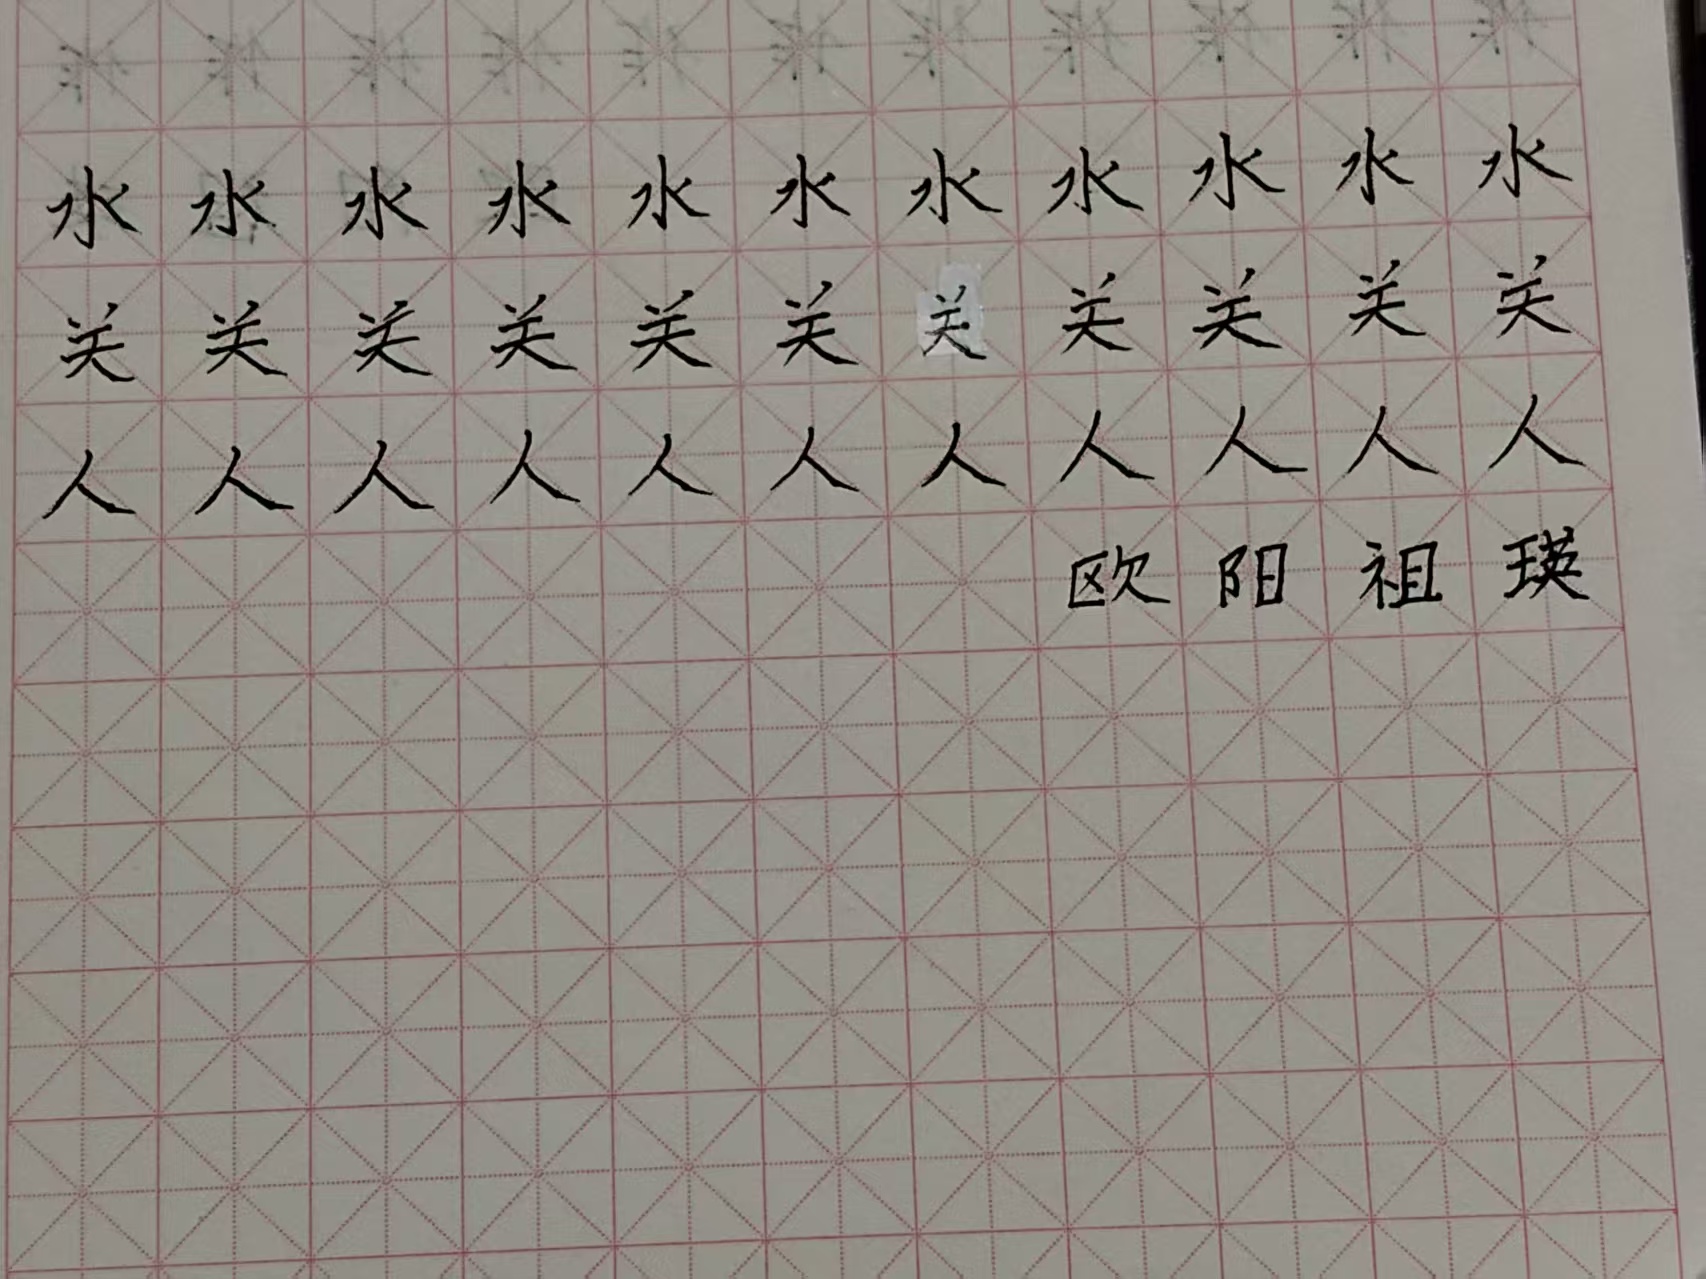 水水水水水水水水水水水
关关关关关关关关关关关
人人人人人人人人人人人
欧阳祖瑛